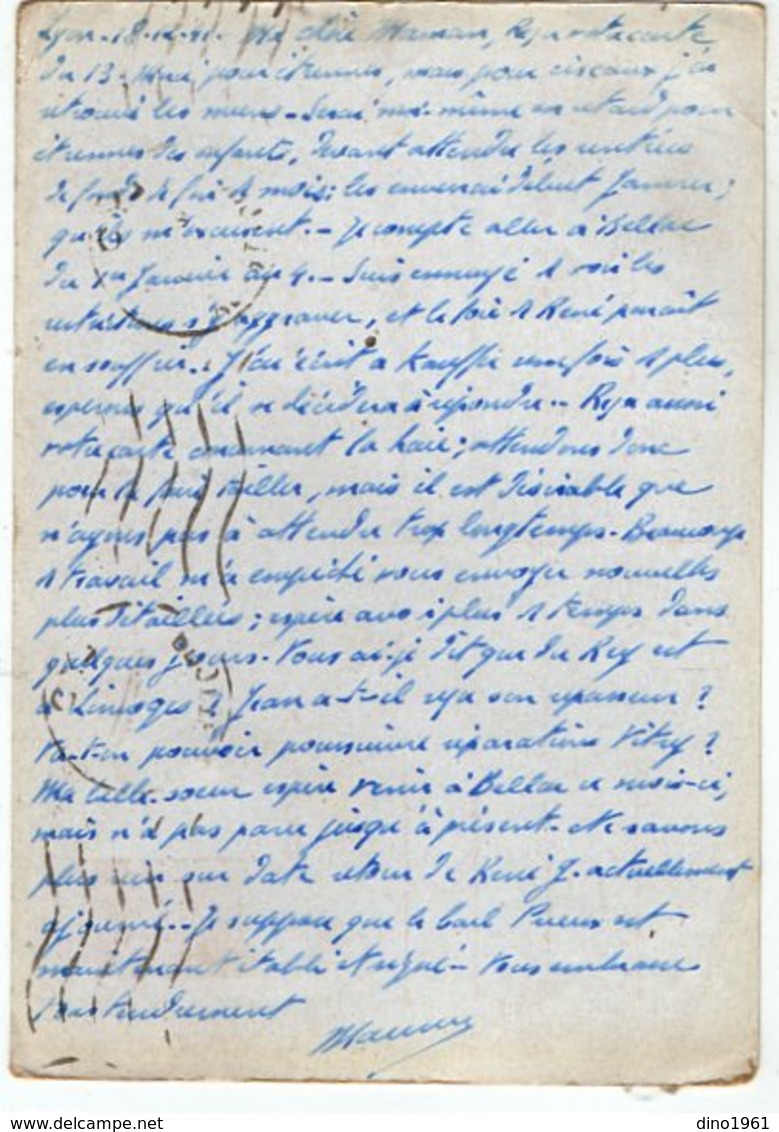 Lyon - 18-12-41. Ma chère Maman, Reçu votre carte
du 13. Merci pour étrennes, mais pour ciseaux j'ai
retrouvé les miens - Serai moi-même en retard pour
étrennes des enfants, devant attendre les rentrées
de fonds de fin de mois; les enverrai début Janvier;
qu'ils m'excusent. - Je compte aller à Bellac
du 1er Janvier au 4. - Suis ennuyé de voir les
restrictions s'aggraver, et le foie de René paraît
en souffrir. J'ai écrit à une fois de plus,
espérons qu'il se décidera à répondre. - Reçu aussi
votre carte concernant la haie; attendons donc
pour la faire tailler, mais il est désirable que
n'ayons pas à attendre trop longtemps - Beaucoup
de travail m'a empêché vous envoyer nouvelles
plus détaillées; espère avoir plus de temps dans
quelques jours - Vous ai-je dit que du Rey est
à Limoges? Jean a-t-il reçu son repasseur?
Va-t-on pouvoir poursuivre réparations Vitry?
Ma belle-soeur espère venir à Bellac ce mois-ci,
mais n'a pas paru jusqu'à présent - Ne savons
plus rien sur date retour de René J. actuellement
ajourné. - Je suppose que le bail est
maintenant établi et signé - Vous embrasse
tous tendrement

dino1961